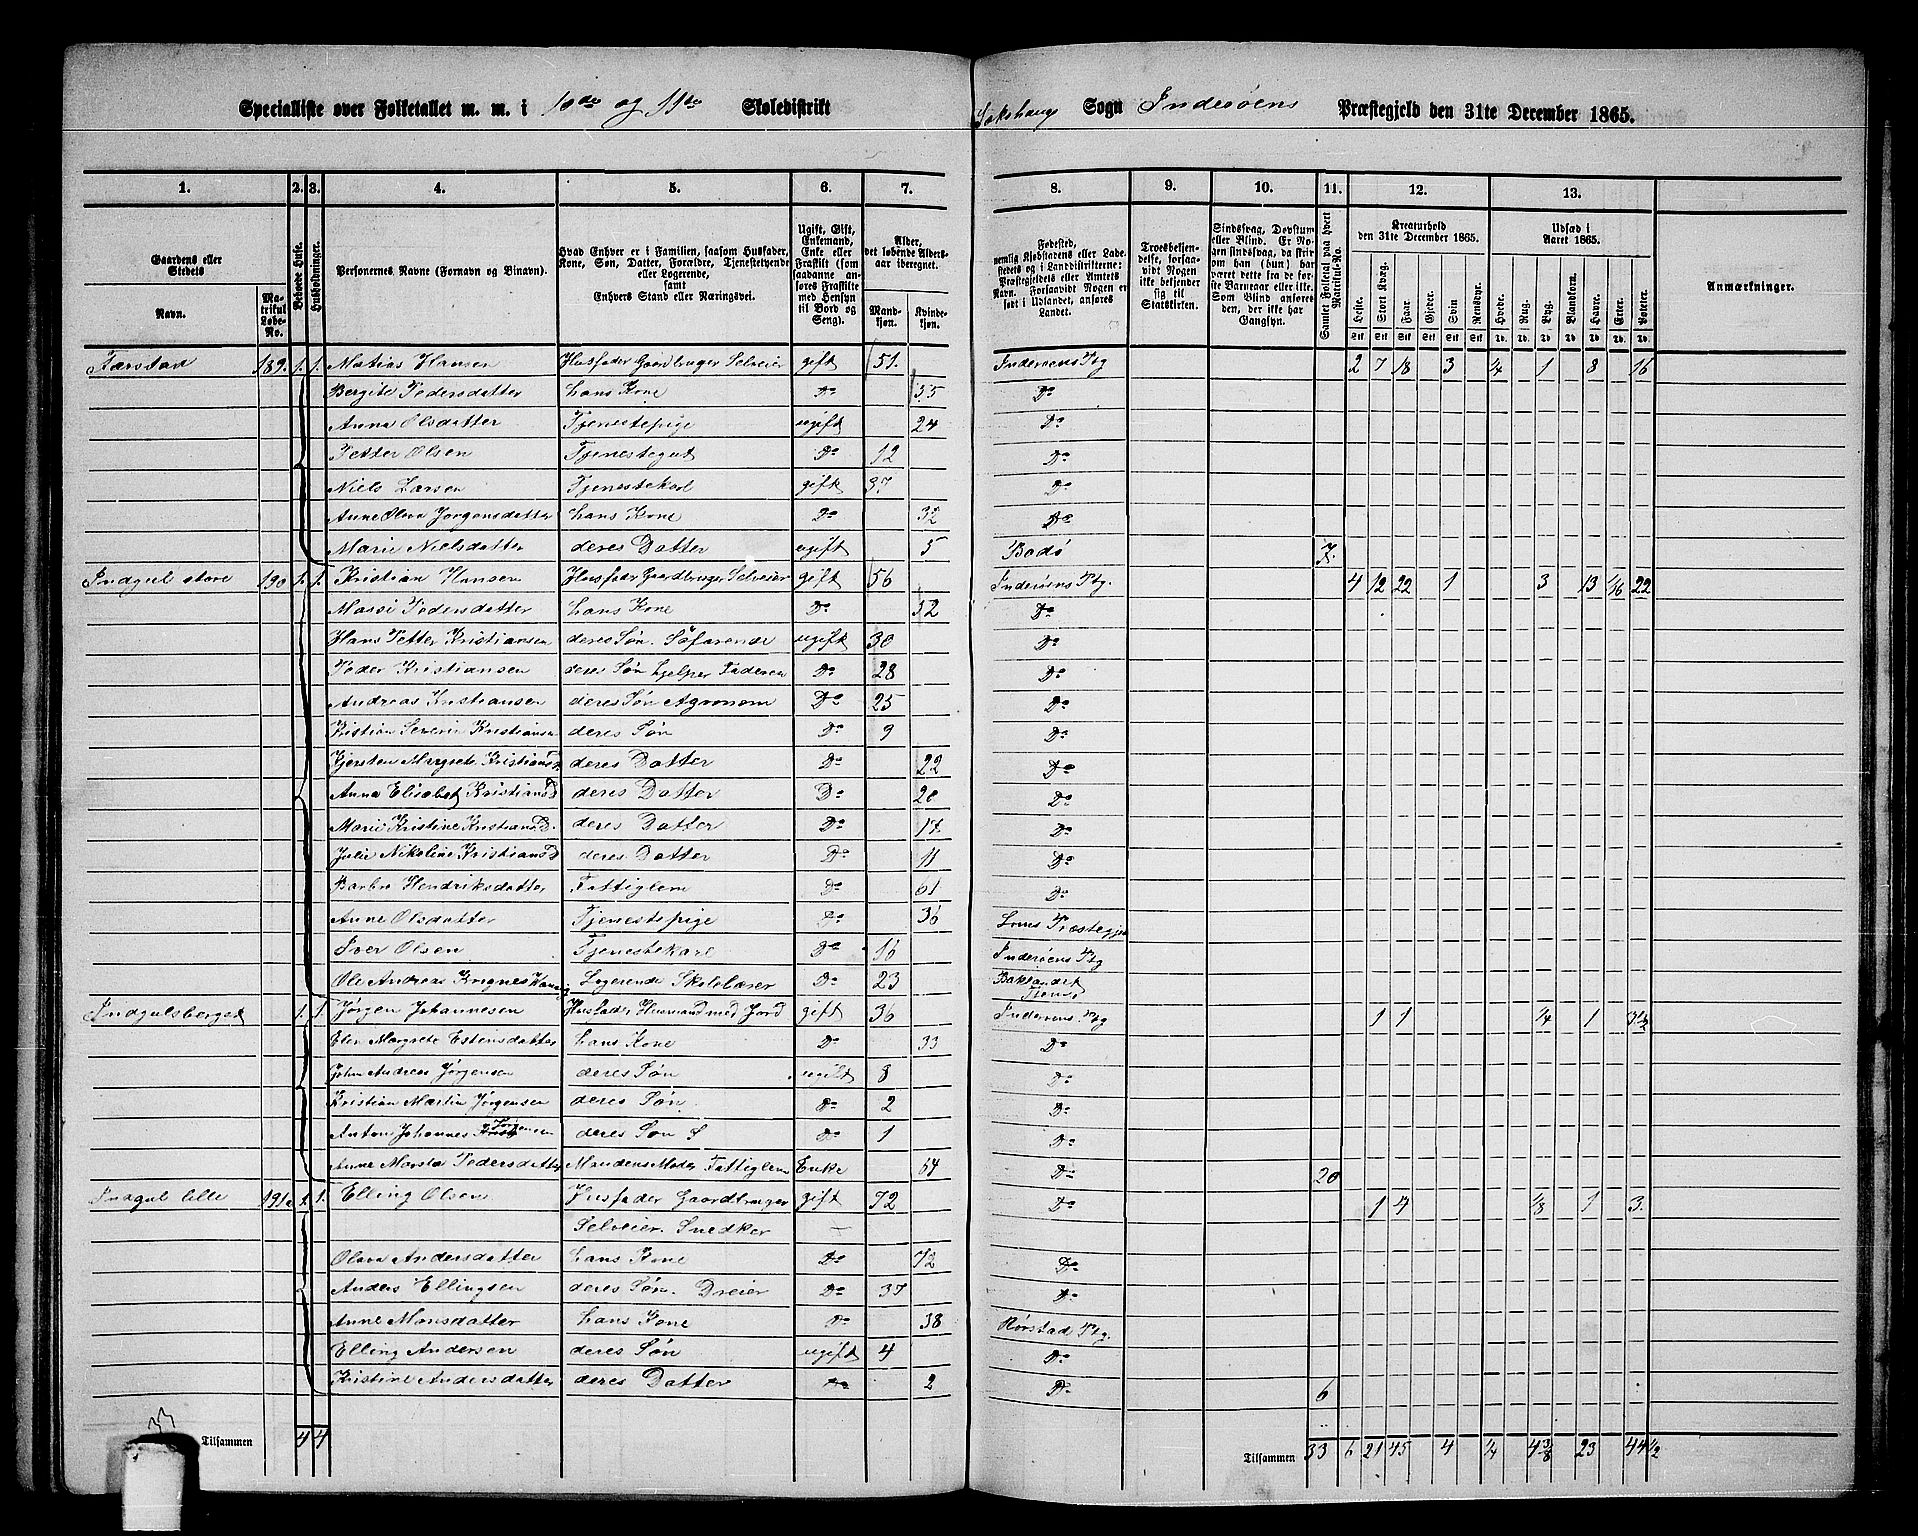 Specialliste over Folketallet m. m. i 10de og 11te Skoledistrikt Sakshaug Sogn Inderøens Præstegjeld den 31te December 1865.
1. 2. 3. 4. 5. 6. 7. 8. 9. 10. 11. 12. 13.
Gaardens eller Stedets
Navn.
Matrikul Løbe-No.
Beboede Huse.
Husholdninger.
Personernes Navne (Fornavn og Binavn).
Hvad Enhver er i Familien, saasom Husfader, Kone, Søn, Datter, Forældre, Tjenestetyende eller Logerende, samt Enhvers Stand eller Næringsvei.
Ugift, Gift, Enkemand, Enke eller Fraskilt (som saadanne anføres Fraskilte med Hensyn til Bord og Seng).
Alder, det løbende Alders-aar iberegnet.
Mandkjøn. Kvindekjøn.
Fødested, nemlig Kjøbstadens eller Ladestedets og i Landdistrikterne: Præstegjeldets eller Amtets Navn. Forsaavidt Nogen er født i Udlandet, anføres Landet.
Troesbekjendelse, forsaavidt Nogen ikke bekjender sig til Statskirken.
Sindssvag, Døvstum eller Blind. Er Nogen sindssvag, da skriv om han (hun) har været dette fra de første Barneaar eller ikke. Som Blind anføres den, der ikke har Gangsyn.
Samlet Folketal paa hvert Matrikul-No.
Kreaturhold den 31te December 1865.
Heste. Stort Kvæg. Faar. Gjeder. Svin. Rensdyr.
Udsæd i Aaret 1865.
Hvede. Rug. Byg. Blandkorn. Havre. Erter. Poteter.
Anmærkninger.
189. 1. 1. Matias Hansen Husfader Gaardbruger Selveier gift 51. Inderøens Ptg 2 7 18 3 1/4 1 8 16
Bergite Pedersdatter hans Kone Do 55 Do
Anna Olsdatter Tjenestepige ugift 24 Do
Petter Olsen Tjenestegut Do 12 Do
Niels Larsen Tjenestekarl gift 37. Do
Anne Olava Jørgensdatter hans Kone Do 32 Do
Marie Nielsdatter deres Datter ugift 5 Bodø 7.
Indgul store 190 1. 1. Kristian Hansen Husfader Gaardbruger Selveier gift 56 Inderøens Ptg. 4 12 22 1 3 13 1/16 22
Massi Pedersdatter hans Kone Do 52 Do
Hans Petter Kristiansen deres Søn. Søfarende ugift 30 Do
Peder Kristiansen deres Søn hjelper Faderen Do 28 Do
Andreas Kristiansen deres Søn Agronom Do 25 Do
Kristian Severin Kristiansen deres Søn Do 9 Do
Kjersten Margrete Kristiansd. deres Datter Do 22 Do
Anna Elisabet Kristiansd deres Datter Do 20 Do
Marie Kristine Kristiansd. deres Datter Do 17 Do
Julie Nikoline Kristiansd deres Datter Do 11 Do
Barbro Hendriksdatter Fattiglem Do 61 Do
Anne Olsdatter Tjenestepige Do 36 Præstegjeld
Iver Olsen Tjenestekarl Do 16 Inderøens Ptg
Ole Andreas Logerende Skolelærer Do 23 Baklandet
Indgulsberget 1. 1. Jørgen Johannesen Husfader Husmand med Jord gift 36 Inderøens Ptg 1 1 1/4 1 3 1/2
Elen Margrete Estensdatter hans Kone Do 33 Do
John Andreas Jørgensen deres Søn ugift 8 Do
Kristian Martin Jørgensen deres Søn Do 2 Do
Anton Johannes Jørgensen deres Søn Do 1 Do
Anne Marta Pedersdatter Mandens Moder Fattiglem Enke 64 Do 20
Indgul lille 191 1. 1. Elling Olsen Husfader Gaardbruger gift 72 Do 1 4 1/8 1 3.
Selveier. Snedker
Olava Andersdatter hans Kone Do 72 Do
Anders Ellingsen deres Søn. Dreier Do 37 Do
Anne Monsdatter hans Kone Do 38 Rørstad Ptg.
Elling Andersen deres Søn ugift 4 Do
Kristine Andersdatter deres Datter Do 2 Do 6
33
Tilsammen 4 4 Tilsammen 33 6 21 45 4 1/4 4 3/8 23 44 1/2